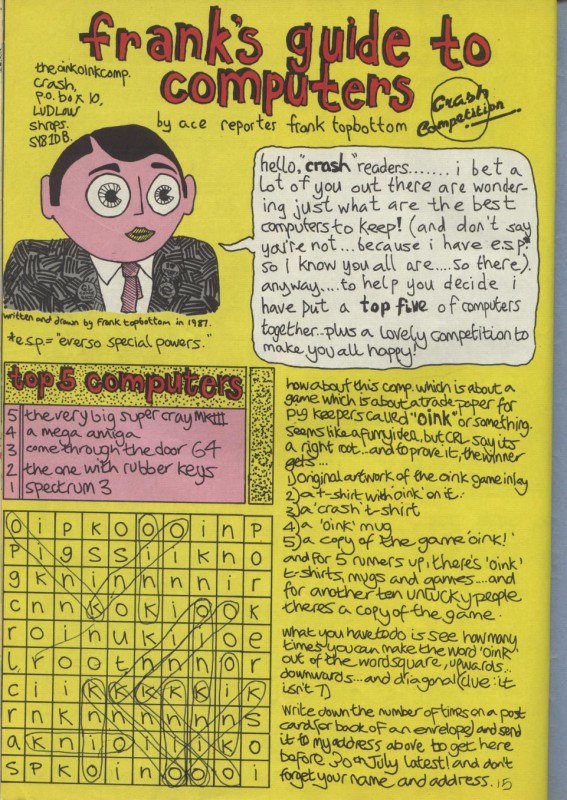 frank's guide to
computers
the oink oink comp.
crash,
p.o. box 10,
LUDLOW
shrops.
SY8 1DB.
by ace reporter frank topbottom
Crash
Competition.
hello, "crash" readers....... i bet a
lot of you out there are wonder-
ing just what are the best
computers to keep! (and don't say
you're not... because i have esp*
so i know you all are....so there).
anyway....to help you decide i
have put a top five of computers
together..plus a lovely competition to
make you all happy!
written and drawn by frank topbottom in 1987.
*e.s.p.= "everso special powers."
top 5 computers
5 the very big super cray MKIII
4 a mega amiga
3 come through the door 64
2 the one with rubber keys
1 spectrum 3
how about this comp. which is about a
game which is about a trade paper for
pig keepers called "oink" or something.
seems like a funy idea. but CRL say its
a right root...and to prove it, the winner
gets...
1) original artwork of the oink game inlay
2) a t-shirt with 'oink' on it.
3) a 'crash' t-shirt
4) a 'oink' mug
5) a copy of the game 'oink!'
and for 5 runers up, there's 'oink'
t-shirts, mugs and games....and
for another ten unlucky people
theres a copy of the game.
what you have to do is see how many
times you can make the word 'oink'
out of the wordsquare, upwards..
downwards...and diagonal (clue: it
isn't 7)
write down the number of times on a post
card (or back of an envelope) and send
it to my address above to get here
before 30th July latest! and don't
forget your name and address. 15
o i p k o o o i n p
p i g s s i i k n o
g k n i n n n n i r
c n n k o k i o o k
r o i n u k i i o e
l r o o t n n n o r
c i i k k k k k i k
r n k n n n n n n s
a k n i o i l i k o
s p k o i n o o o i